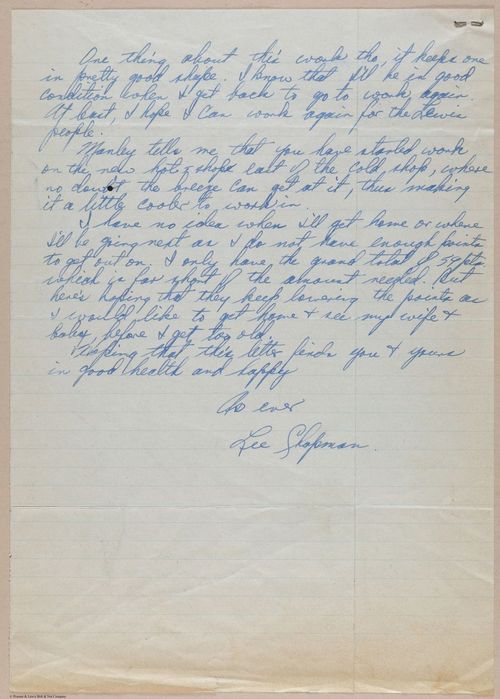 One thing about this work tho, it keeps one
in pretty good shape. I know that I'll be in good
condition when I get back to go to work again.
At least, I hope I can work again for the Lewis
people.
Manley tells me that you have started work
on the new hot shops east of the cold shop, where
no doubt the breeze can get at it, thus making
it a little cooler to work in.
I have no idea when I'll get home or where
I'll be going next as I do not have enough points
to get out on. I only have the grand total of 54 pts
which is far short of the amount needed. But
here's hoping that they keep lowering the points as
I would like to get home & see my wife &
baby before I get too old.
Hoping that this letter finds you & yours
in good health and happy
As ever
Lee Shapman.